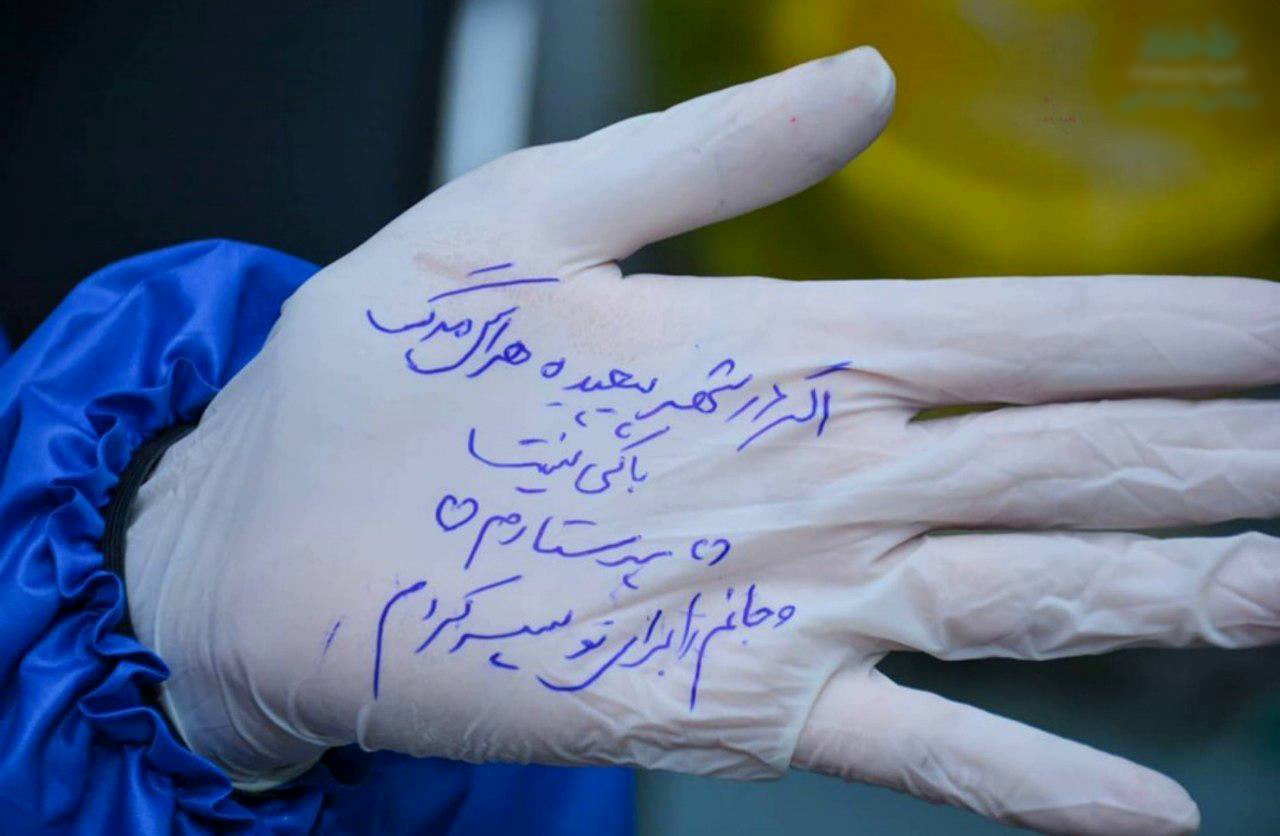 اگر در شهر پیچیده هراس مرگ
باکی نیست
♡ پرستارم ♡
و جانم را برای تو سپر کرده‌ام